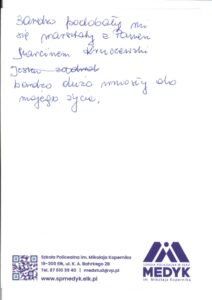 Bardzo podobały mi
się warsztaty z Panem
Marcinem Kruczewski
Jestem
bardzo dużo wniosły do
mojego życia.
Szkoła Policealna im. Mikołaja Kopernika
19-300 Ełk, ul. K. Bahrkego 2B
Tel. 87 610 39 40 | medstud@vp.pl
www.spmedyk.elk.pl
SZKOŁA POLICEALNA W EŁKU
MEDYK
im. Mikołaja Kopernika